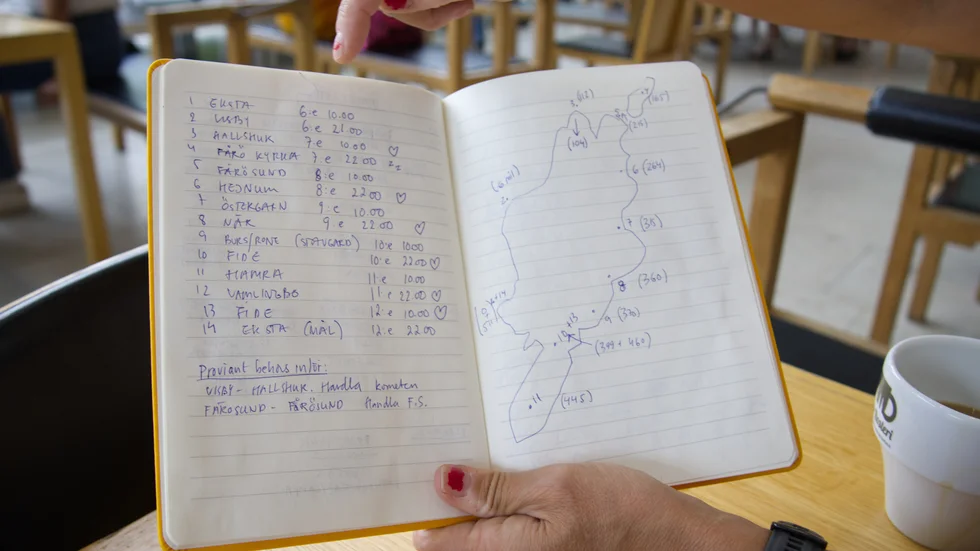 1 EKSTA 6:e 10.00
2 VISBY 6:e 22.00
3 HALLSHUK 7:e 10.00
4 FÅRÖ KYRKA 7:e 22.00 ♡ zz
5 FÅRÖSUND 8:e 10.00
6 HEJNUM 8:e 22.00 ♡
7 ÖSTERGARN 9:e 10.00
8 NÄR 9:e 22.00 ♡
9 BURS/RONE (STAVGARD) 10:e 10.00
10 FIDE 10:e 22.00 ♡
11 HAMRA 11:e 10.00
12 VAMLINGBO 11:e 22.00 ♡
13 FIDE 12:e 10.00 ♡
14 EKSTA (MÅL) 12:e 22.00
Proviant behövs inför:
VISBY - HALLSHUK. Handla kometen
FÅRÖSUND - FÅRÖSUND Handla F.S.
3
(104)
(165)
5
(216)
6 (264)
2
7 (315)
8 (360)
9 (370)
10+13
(399+460)
11
(445)
1+14